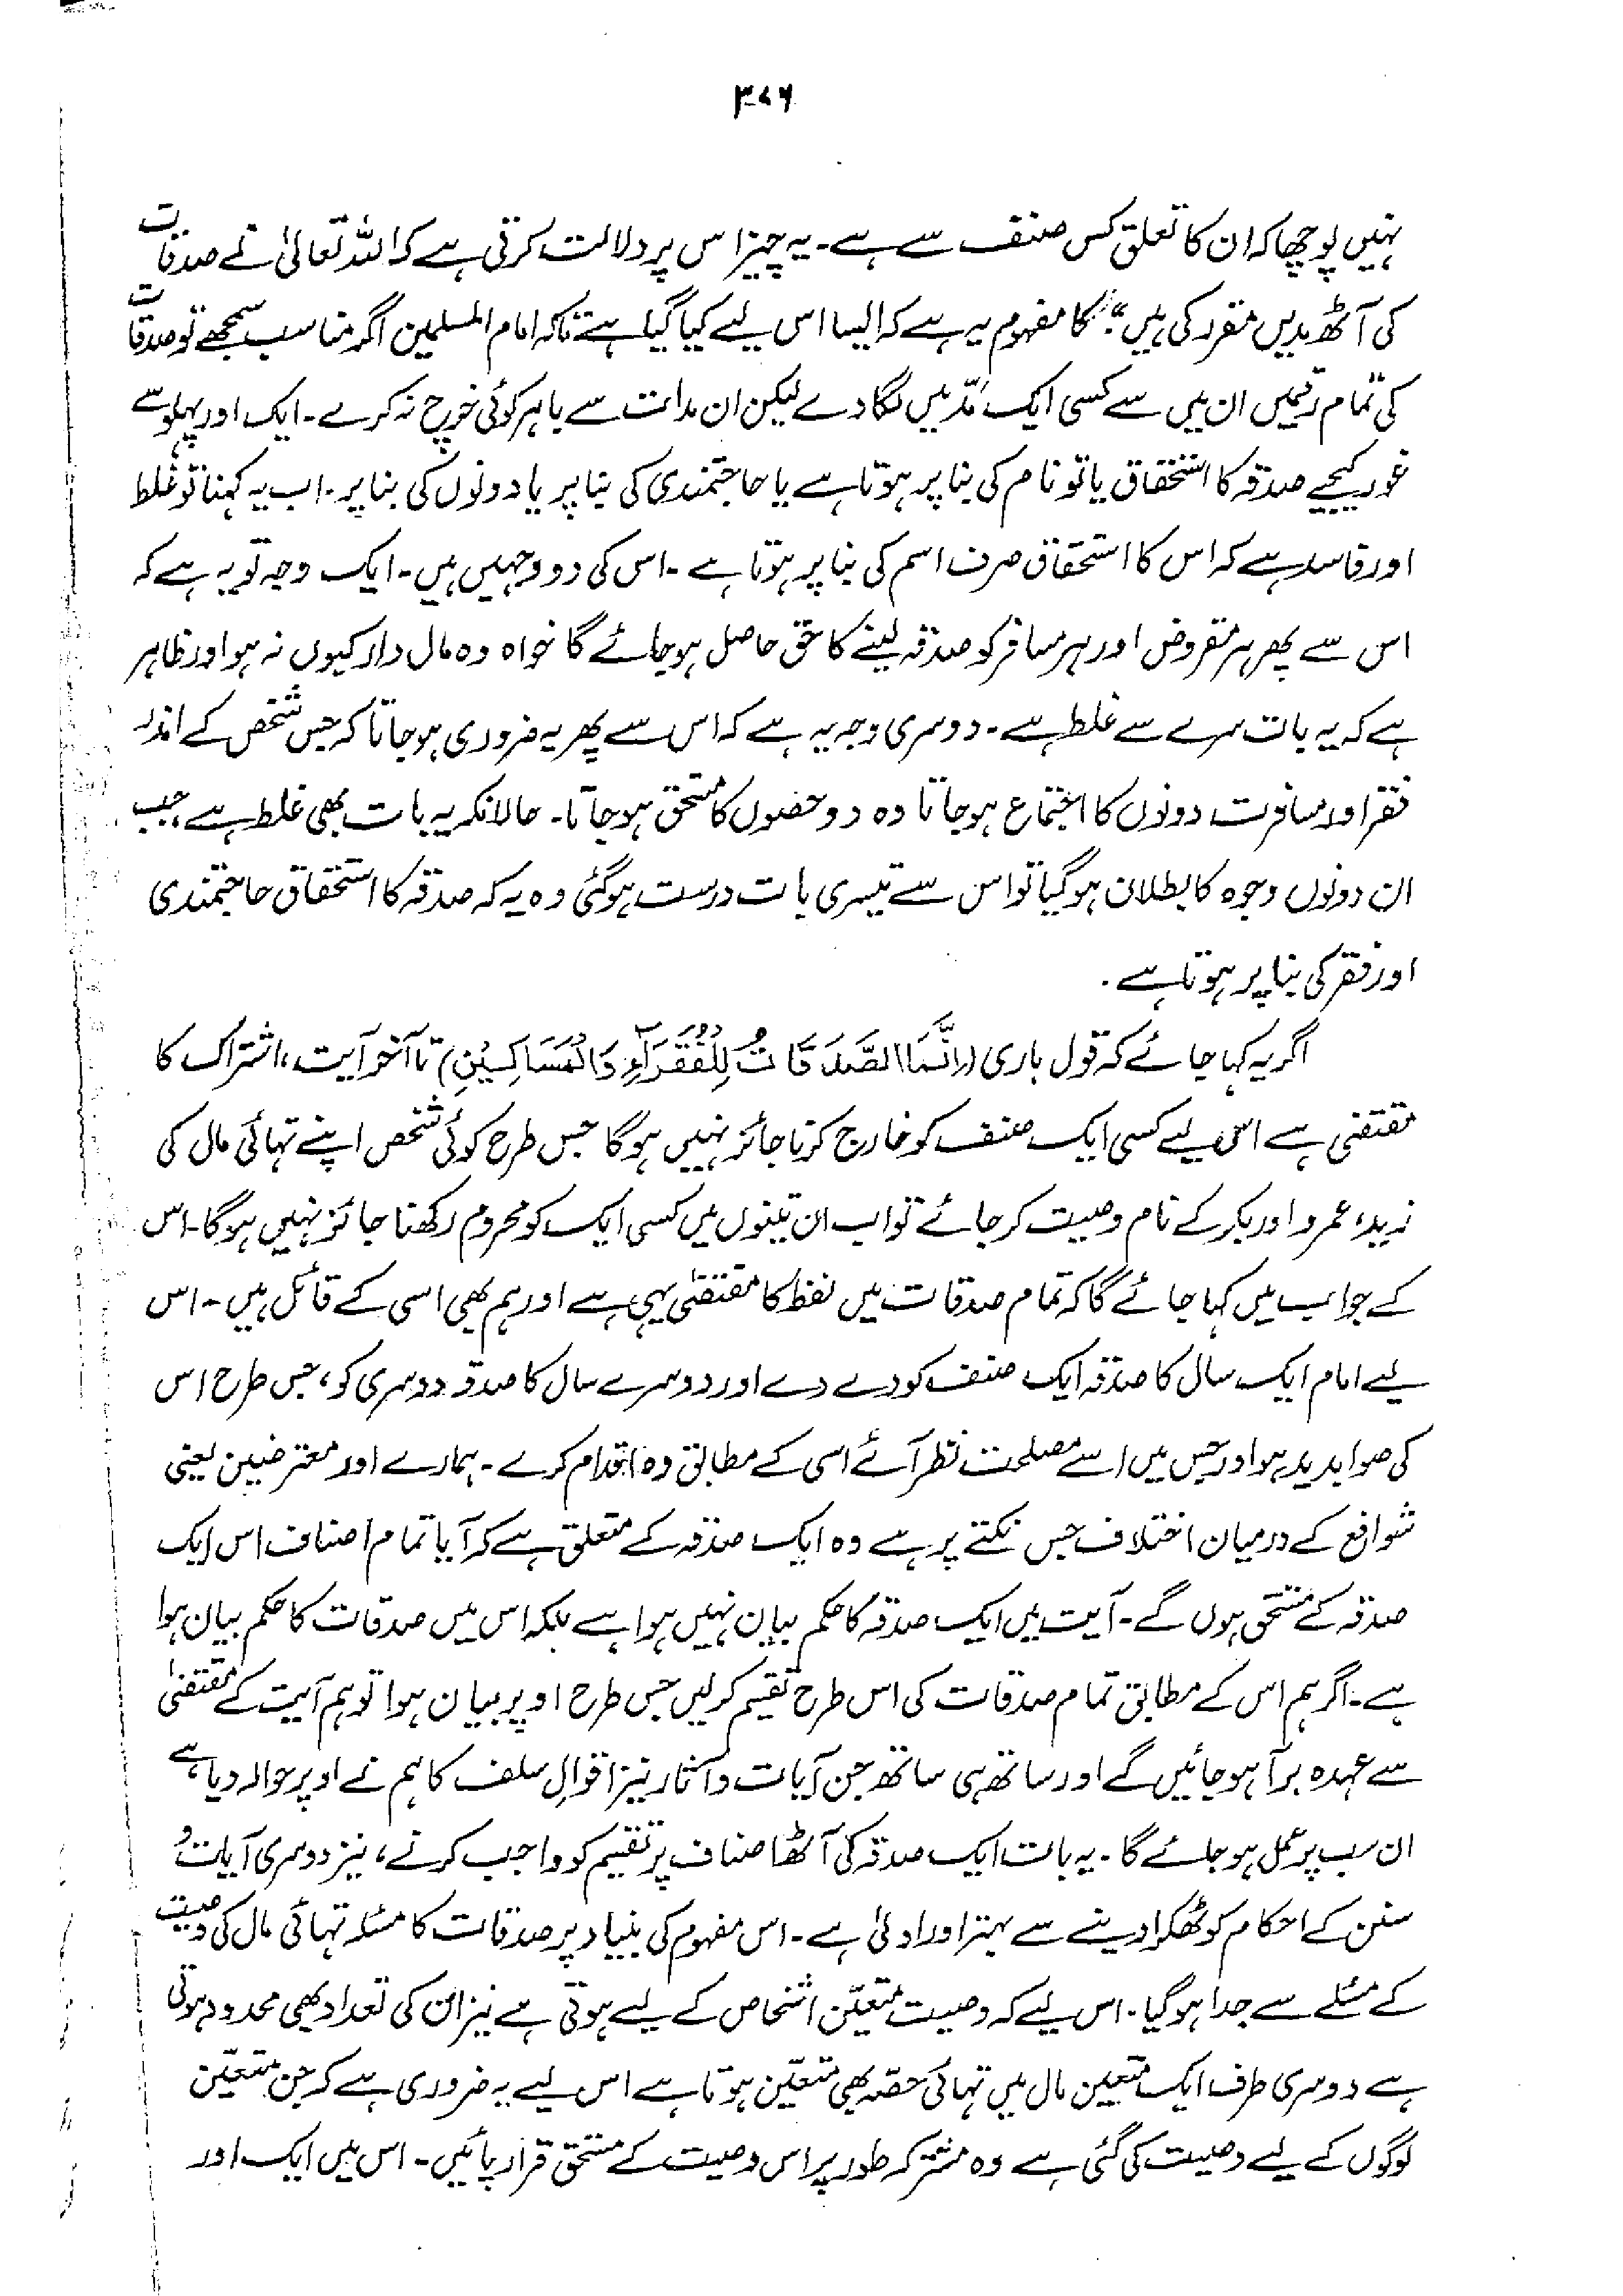 ۳۷۶
نہیں پوچھا کہ ان کا تعلق کس صنف سے ہے۔ یہ چیز اس پر دلالت کرتی ہے کہ اللہ تعالیٰ نے صدقات
کی آٹھ مدیں مقرر کی ہیں"۔ کا مفہوم یہ ہے کہ ایسا اس لیے کیا گیا ہے تاکہ امام المسلمین اگر مناسب سمجھے تو صدقات
کی تمام رقمیں ان میں سے کسی ایک مَد میں لگا دے لیکن ان مدات سے باہر کوئی خرچ نہ کرے۔ ایک اور پہلو سے
غور کیجیے صدقہ کا استحقاق یا تو نام کی بنا پر ہوتا ہے یا حاجتمندی کی بنا پر یا دونوں کی بنا پر۔ اب یہ کہنا تو غلط
اور فاسد ہے کہ اس کا استحقاق صرف اسم کی بنا پر ہوتا ہے۔ اس کی دو وجہیں ہیں۔ ایک وجہ تو یہ ہے کہ
اس سے پھر ہر مقروض اور ہر مسافر کو صدقہ لینے کا حق حاصل ہو جائے گا خواہ وہ مال دار کیوں نہ ہو اور ظاہر
ہے کہ یہ بات سرے سے غلط ہے۔ دوسری وجہ یہ ہے کہ اس سے پھر یہ ضروری ہو جاتا کہ جس شخص کے اندر
فقر اور مسافرت دونوں کا اجتماع ہو جاتا وہ دو حصوں کا مستحق ہو جاتا۔ حالانکہ یہ بات بھی غلط ہے جب
ان دونوں وجوہ کا بطلان ہو گیا تو اس سے تیسری بات درست ہو گئی وہ یہ کہ صدقہ کا استحقاق حاجتمندی
اور فقر کی بنا پر ہوتا ہے۔
اگر یہ کہا جائے کہ قول باری (اِنَّمَا الصَّدَقَاتُ لِلْفُقَرَآءِ وَالْمَسَاكِيْنِ) تا آخر آیت، اشتراک کا
مقتضی ہے اس لیے کسی ایک صنف کو خارج کرنا جائز نہیں ہوگا جس طرح کوئی شخص اپنے تہائی مال کی
زید، عمرو اور بکر کے نام وصیت کر جائے تو اب ان تینوں میں کسی ایک کو محروم رکھنا جائز نہیں ہوگا۔ اس
کے جواب میں کہا جائے گا کہ تمام صدقات میں لفظ کا مقتضٰی یہی ہے اور ہم بھی اسی کے قائل ہیں۔ اس
لیے امام ایک سال کا صدقہ ایک صنف کو دے دے اور دوسرے سال کا صدقہ دوسری کو، جس طرح اس
کی صوابدید ہو اور جس میں اسے مصلحت نظر آئے اسی کے مطابق وہ اقدام کرے۔ ہمارے اور معترضین یعنی
شوافع کے درمیان اختلاف جس نکتے پر ہے وہ ایک صدقہ کے متعلق ہے کہ آیا تمام اصناف اس ایک
صدقہ کے مستحق ہوں گے۔ آیت میں ایک صدقہ کا حکم بیان نہیں ہوا ہے بلکہ اس میں صدقات کا حکم بیان ہوا
ہے۔ اگر ہم اس کے مطابق تمام صدقات کی اس طرح تقسیم کر لیں جس طرح اوپر بیان ہوا تو ہم آیت کے مقتضٰی
سے عہدہ برآ ہو جائیں گے اور ساتھ ہی ساتھ جن آیات و آثار نیز اقوالِ سلف کا ہم نے اوپر حوالہ دیا ہے
ان سب پر عمل ہو جائے گا۔ یہ بات ایک صدقہ کی آٹھ اصناف پر تقسیم کو واجب کرنے، نیز دوسری آیات و
سنن کے احکام کو ٹھکرا دینے سے بہتر اور اولیٰ ہے۔ اس مفہوم کی بنیاد پر صدقات کا مسئلہ تہائی مال کی وصیت
کے مسئلے سے جدا ہو گیا۔ اس لیے کہ وصیت متعیّن اشخاص کے لیے ہوتی ہے نیز ان کی تعداد بھی محدود ہوتی
ہے دوسری طرف ایک متعین مال میں تہائی حصّہ بھی متعیّن ہوتا ہے اس لیے یہ ضروری ہے کہ جن متعیّن
لوگوں کے لیے وصیت کی گئی ہے وہ مشترکہ طور پر اس وصیت کے مستحق قرار پائیں۔ اس میں ایک اور